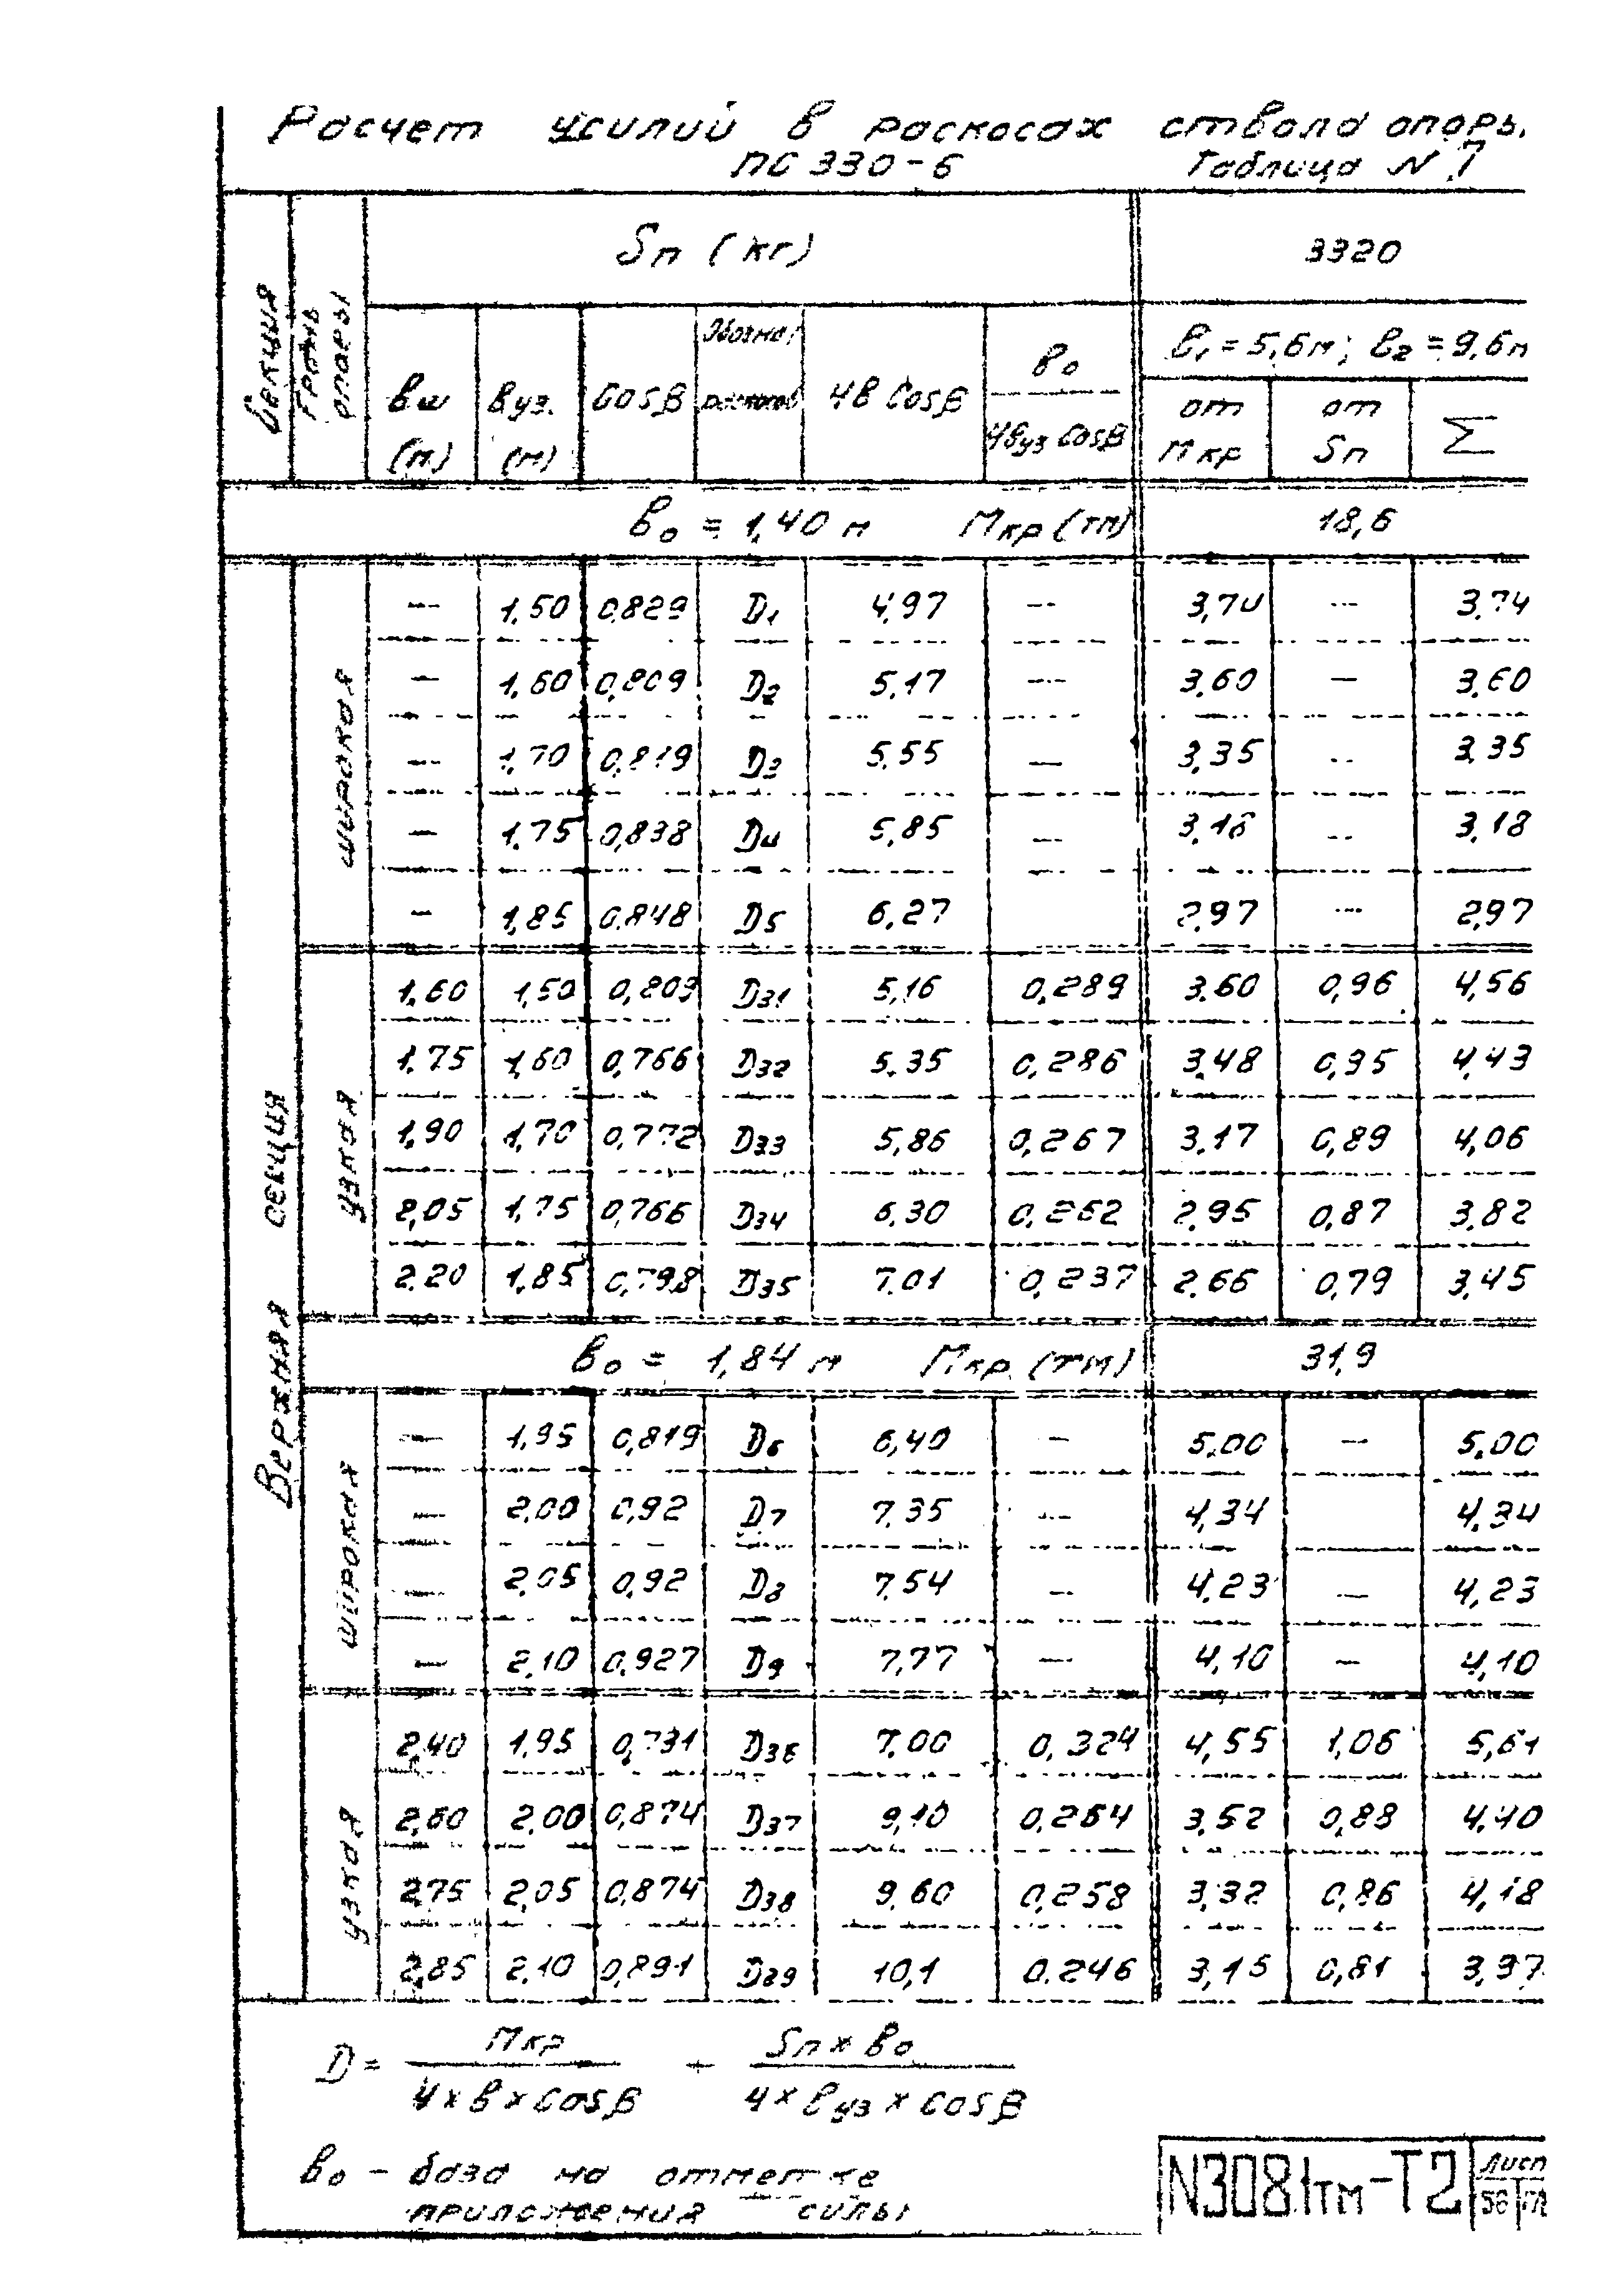 Расчет усилий в раскосах ствола опоры
ПС 330-6 Таблица N 7
Секция
Грань опоры
Sп (кг) 3320
bш (м) bуз. (м) Cosβ Обознач. раскосов 4b Cosβ b₀ / 4bуз Cosβ
b₁ = 5,6м; b₂ = 9,6м
от Мкр от Sп Σ
b₀ = 1,40 м Мкр (тм) 18,6
Верхняя секция
широкая
— 1,50 0,829 D1 4,97 — 3,74 — 3,74
— 1,60 0,809 D2 5,17 — 3,60 — 3,60
— 1,70 0,819 D3 5,55 — 3,35 — 3,35
— 1,75 0,838 D4 5,85 — 3,18 — 3,18
— 1,85 0,848 D5 6,27 2,97 — 2,97
узкая
1,60 1,50 0,809 D31 5,16 0,289 3,60 0,96 4,56
1,75 1,60 0,766 D32 5,35 0,286 3,48 0,95 4,43
1,90 1,70 0,772 D33 5,86 0,267 3,17 0,89 4,06
2,05 1,75 0,766 D34 6,30 0,262 2,95 0,87 3,82
2,20 1,85 0,798 D35 7,01 0,237 2,66 0,79 3,45
b₀ = 1,84 м Мкр. (тм) 31,9
широкая
— 1,95 0,819 D6 6,40 — 5,00 — 5,00
— 2,00 0,92 D7 7,35 — 4,34 4,34
— 2,05 0,92 D8 7,54 — 4,23 — 4,23
— 2,10 0,927 D9 7,77 — 4,10 — 4,10
узкая
2,40 1,95 0,731 D36 7,00 0,324 4,55 1,06 5,61
2,60 2,00 0,874 D37 9,10 0,264 3,52 0,88 4,40
2,75 2,05 0,874 D38 9,60 0,258 3,32 0,86 4,18
2,85 2,10 0,891 D39 10,1 0,246 3,15 0,81 3,97
D = Мкр / 4×b×cosβ + Sп×b₀ / 4×bуз×cosβ
b₀ - база на отметке
приложения силы
N3081тм-Т2
Лист
56